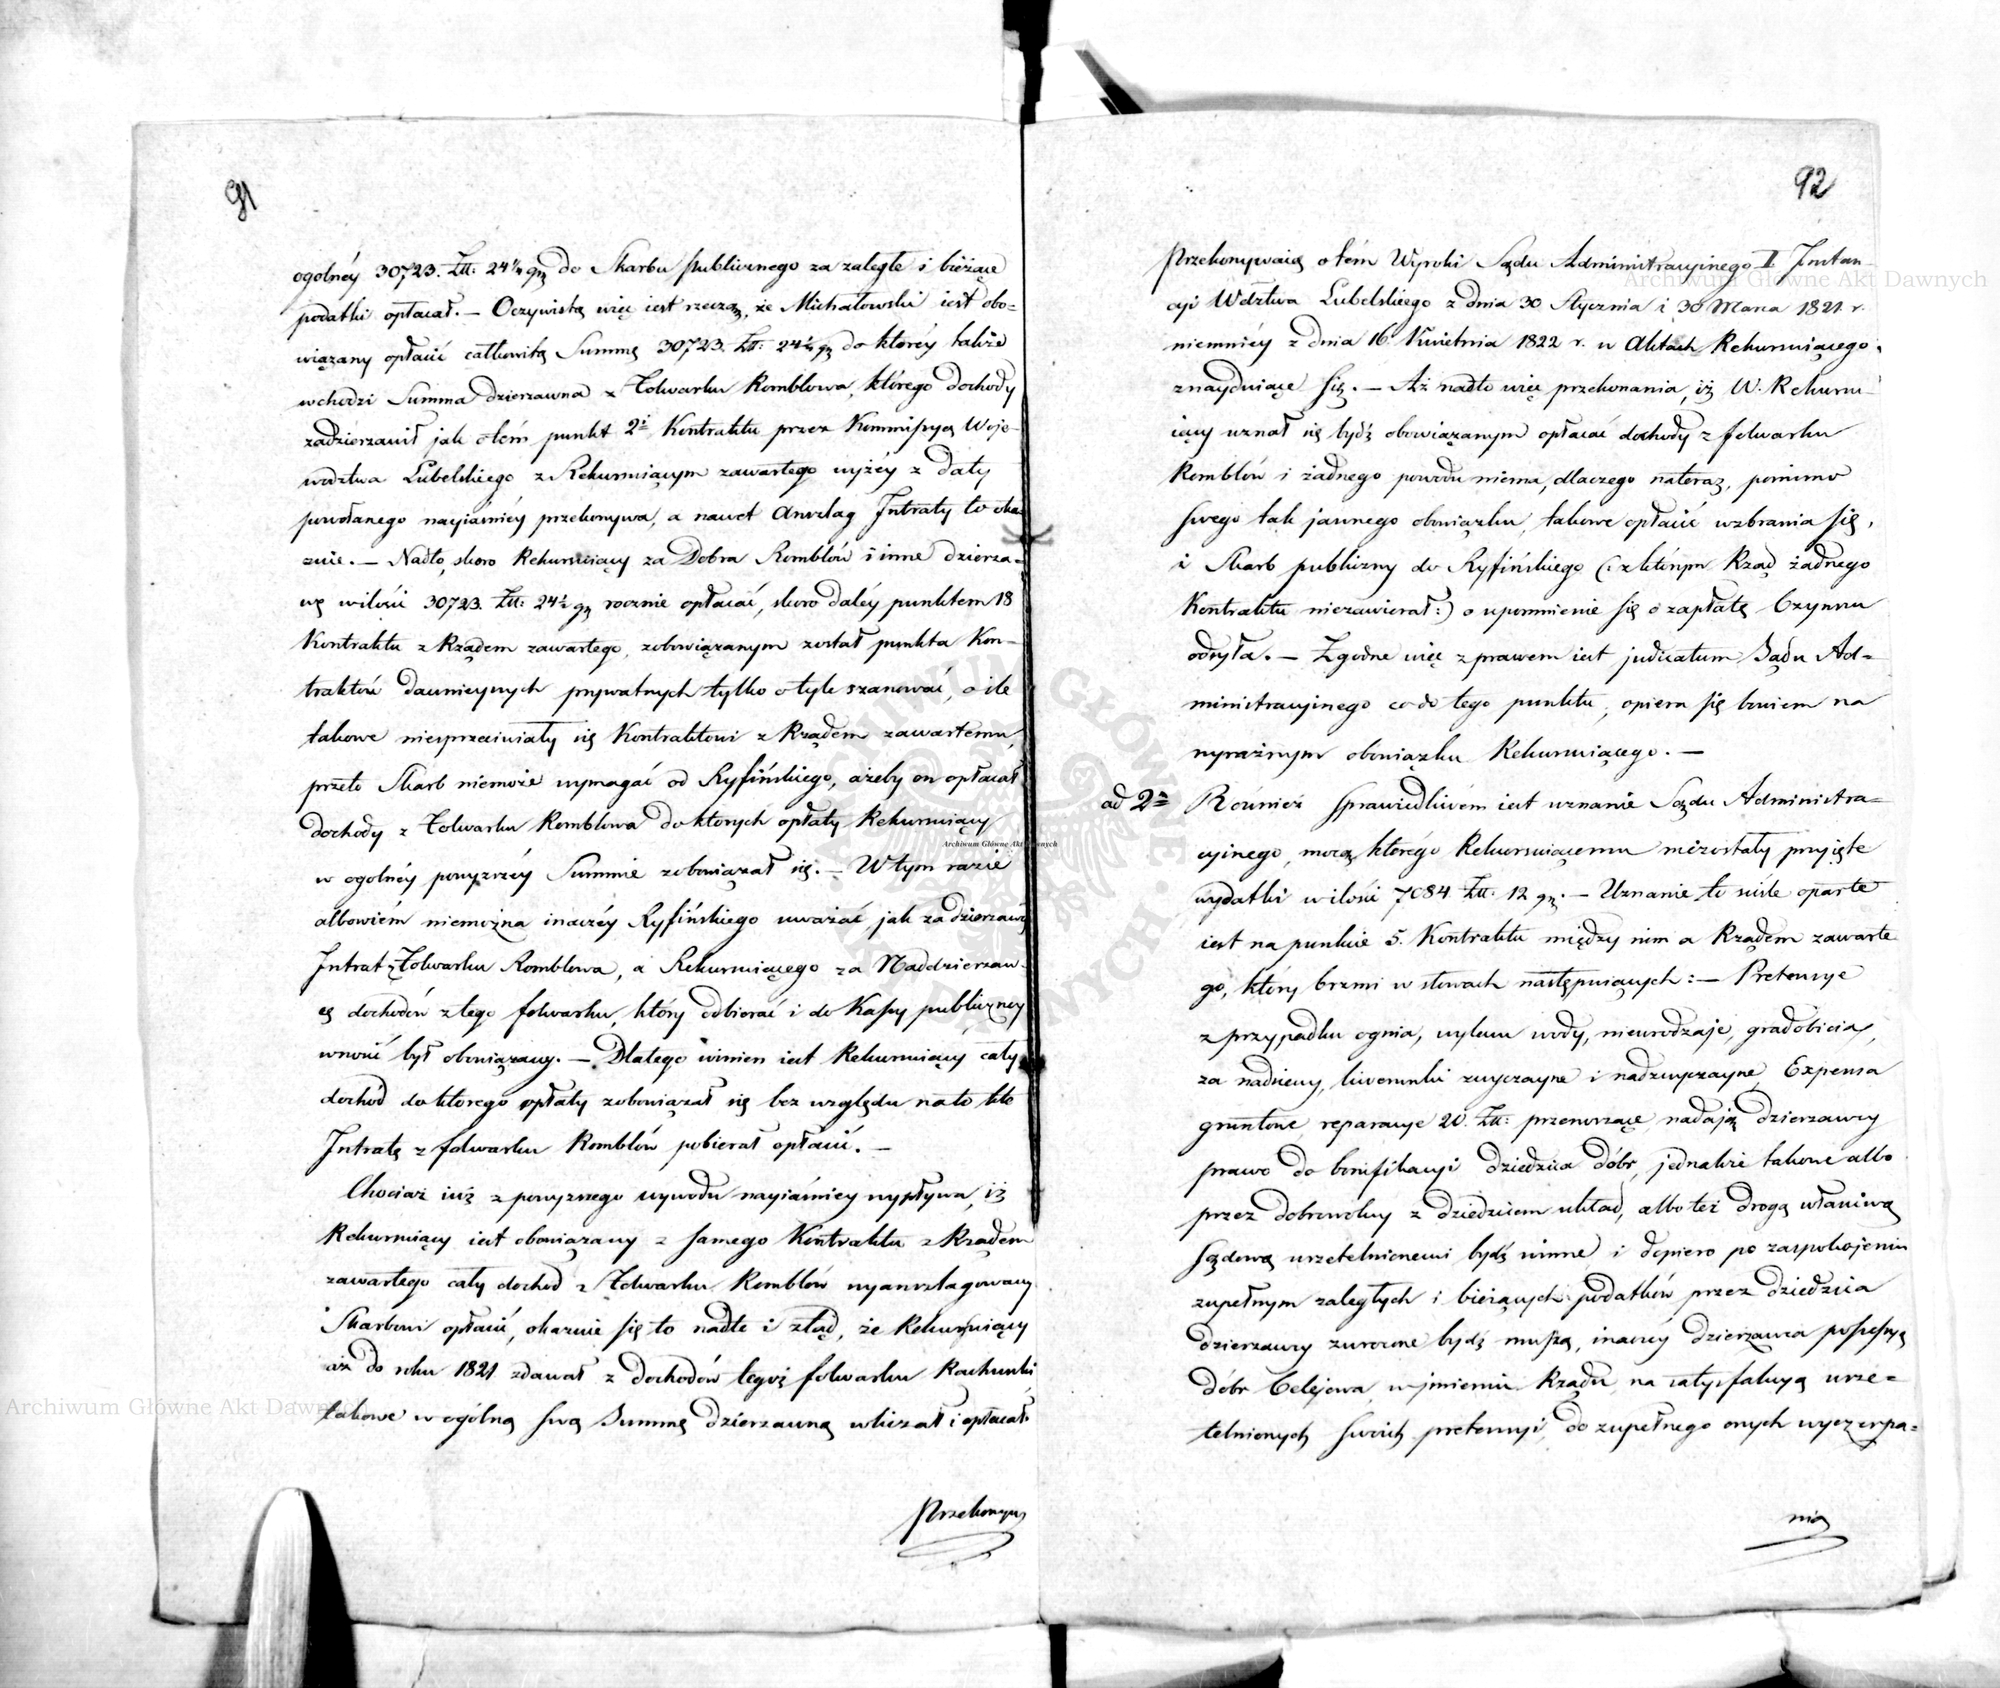 91
ogolnéy 30723. Złł: 24¼ gr do Skarbu publicznego za zaległe i bieżące
podatki opłacał. — Oczywistą więc iest rzeczą, że Michałowski iest obo-
wiązany opłacić całkowitą Summę 30723. Złł: 24¼ gr do któréy także
wchodzi Summa dzierzawna z Folwarku Romblowa, którego dochody
zadzierzawił jak o tém punkt 2i Kontraktu przez Kommissyą Woje-
wodztwa Lubelskiego z Rekursuiącym zawartego wyżéy z daty
powołanego nayiaśniéy przekonywa, a nawet Anszlag Intraty to oka-
zuie. — Nadto, skoro Rekursuiący za Dobra Romblów i inne dzierza-
wę wilości 30723. Złł: 24½ gr rocznie opłacać, skoro daléy punktem 18
Kontraktu z Rządem zawartego, zobowiązanym został punkta Kon-
traktów dawnieyszych prywatnych tylko o tyle szanować, o ile
takowe niesprzeciwiały się Kontraktowi z Rządem zawartemu,
przeto Skarb niemoże wymagać od Ryfińskiego, ażeby on opłacał
dochody z Folwarku Romblowa do ktorych opłaty Rekursuiący
w ogolnéy powyzszéy Summie zobowiązał się. — W tym razie
albowiém niemożna inaczéy Ryfińskiego uważać, jak za dzierzawcę
Intrat z Folwarku Romblowa, a Rekursuiącego za Naddzierzaw-
cę dochodów z tego folwarku, który odbierać i do Kassy publiczney
wnosić był obowiązany. — Dlatego winien iest Rekursuiący cały
dochód do ktorego opłaty zobowiązał się bez względu na to kto
Intratę z folwarku Romblów pobierał opłacić. —
Chociaż iuż z powyzszego wywodu nayiaśniey wypływa, iż
Rekursuiący iest obowiązany z samego Kontraktu z Rządem
zawartego cały dochod z Folwarku Romblów wyanszlagowany
Skarbowi opłacić, okazuie się to nadto i ztąd, że Rekursuiący
aż do roku 1821 zdawał z dochodów tegoż folwarku Rachunki
takowe w ogólną swą Summę dzierzawną wliczał i opłacał.
Przekonyw
92
Przekonywaią o tém Wyroki Sądu Administracyinego II Instan-
cyi Wdztwa Lubelskiego z dnia 30 Stycznia i 30 Marca 1821. r.
niemniéy z dnia 16. Kwietnia 1822 r. w Aktach Rekursuiącego
znayduiące się. — Aż nadto więc przekonania, iż W. Rekursu-
iący uznał się bydź obowiązanym opłacać dochody z folwarku
Romblów i żadnego powodu niema, dlaczego nateraz, pomimo
swego tak jawnego obowiązku, takowe opłacić wzbrania się,
i Skarb publiczny do Ryfińskiego (: z którym Rząd żadnego
Kontraktu niezawierał:) o upomnienie się o zapłatę Czynszu
odsyła. — Zgodne więc z prawem iest judicatum Sądu Ad-
ministracyinego co do tego punktu, opiera się bowiem na
wyraźnym obowiązku Rekursuiącego. —
ad 2m Również sprawiedliwém iest uznanie Sądu Administra-
cyinego, mocą którego Rekursuiącemu niezostały przyięte
wydatki w ilości 7084 Złł. 12 gr. — Uznanie to ściśle oparte
iest na punkcie 5. Kontraktu między nim a Rządem zawarte-
go, który brzmi w słowach następuiących: — Pretensye
z przypadku ognia, wylewu wody, nieurodzaje, gradobicia,
za nadsiewy, liwerunki zwyczayne i nadzwyczayne, Expensa
gruntowe, reparacye 20. Złł: przenoszące, nadają dzierzawcy
prawo do bonifikacyi dziedzica dóbr, jednakże takowe albo
przez dobrowolny z dziedzicem układ, albo też drogą właściwą
sądową urzetelnionemi bydź winne i dopiero po zaspokojeniu
zupełnym zaległych i bieżących podatków przez dziedzica
dzierzawcy zwrocone bydź muszą, inaczéy dzierzawca possessyą
dóbr Celejowa w jmieniu Rządu na satysfakcyą urze-
telnionych swoich pretensyi, do zupełnego onych wyczerpa-
nia